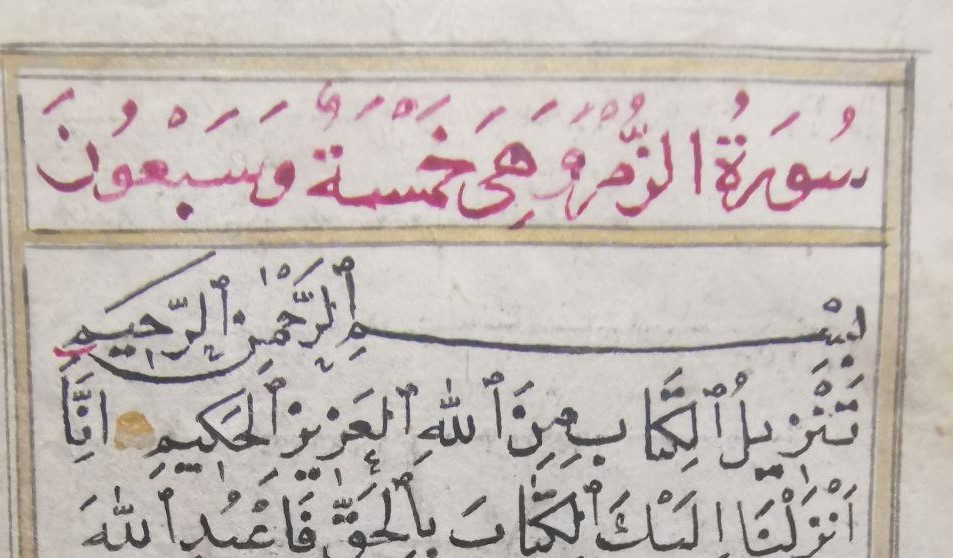 سُورَةُ الزُّمَرْ وَهِىَ خَمْسَةٌ وَسَبْعُونَ
بِسْمِ ٱلرَّحْمٰنِ ٱلرَّحِيمِ
تَنْزِيلُ ٱلْكِتَابِ مِنَ ٱللهِ ٱلعَزِيزِ ٱلْحَكِيمِ اِنَّٓا
اَنْزَلْنَٓا اِلَيْكَ ٱلْكِتَابَ بِٱلْحَقِّ فَاعْبُدِ ٱللهَ